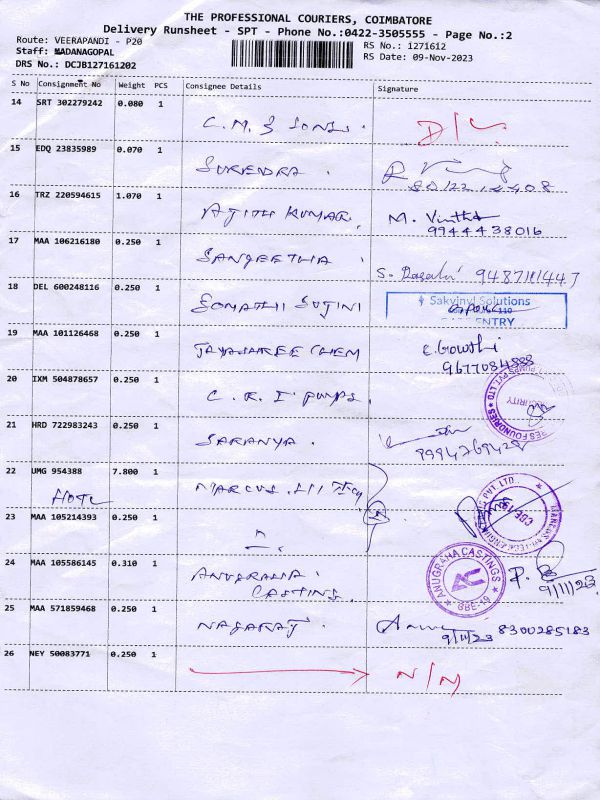 THE PROFESSIONAL COURIERS, COIMBATORE
Delivery Runsheet - SPT - Phone No.:0422-3505555 - Page No.:2
Route: VEERAPANDI - P20
RS No.: 1271612
Staff: MADANAGOPAL
RS Date: 09-Nov-2023
DRS No.: DCJB127161202
S No Consignment No Weight PCS Consignee Details Signature
14 SRT 302279242 0.080 1
C.M.S SONS. D/L
15 EDQ 23835989 0.070 1
SURENDRA.
16 TRZ 220594615 1.070 1
AJITH KUMAR. M.
9944438016
17 MAA 106216180 0.250 1
SANGEETHA.
S. 9487111443
18 DEL 600248116 0.250 1
SOMATHI SUJINI
Sakvinyl Solutions
ENTRY
19 MAA 101126468 0.250 1
JAYASHREE CHEM E. Gowthi
9677084888
20 IXM 504878657 0.250 1
C.R.I PUMPS.
SECURITY
21 HRD 722983243 0.250 1
SARANYA.
9994769428
22 UMG 954388 7.800 1
HOTC MARCUS
PVT. LTD.
23 MAA 105214393 0.250 1
24 MAA 105586145 0.310 1
ANUGRAHA CASTING.
ANUGRAHA CASTINGS
AC
CBE-49
9/11/23
25 MAA 571859468 0.250 1
NAGARAJ
9/11/23 8300285183
26 NEY 50083771 0.250 1
N/N